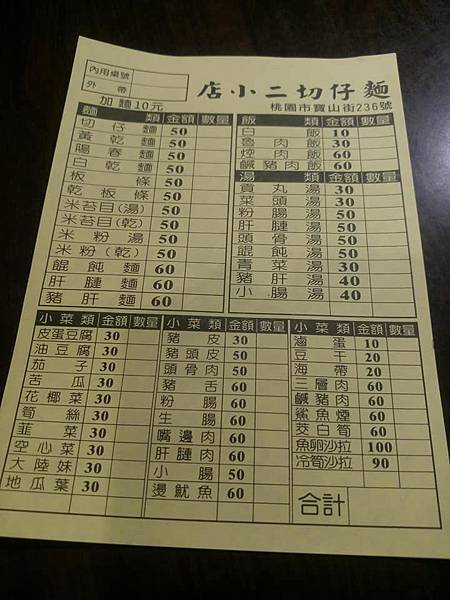 內用桌號
外帶
店小二切仔麵
加麵10元
桃園市寶山街236號
麵類 金額 數量
切仔麵 50
黃乾麵 50
陽春麵 50
白乾麵 50
板條 50
乾板條 50
米苔目(湯) 50
米苔目(乾) 50
米粉湯 50
米粉(乾) 50
餛飩麵 60
肝腱麵 60
豬肝麵 60
飯類 金額 數量
白飯 10
魯肉飯 30
焢肉飯 60
鹹豬肉飯 60
湯類 金額 數量
貢丸湯 30
菜頭湯 30
粉腸湯 50
肝腱湯 50
頭骨湯 50
餛飩湯 50
青菜湯 30
豬肝湯 40
小腸湯 40
小菜類 金額 數量
皮蛋豆腐 30
油豆腐 30
茄子 30
苦瓜 30
花椰菜 30
筍絲 30
韮菜 30
空心菜 30
大陸妹 30
地瓜葉 30
小菜類 金額 數量
豬皮 30
豬頭皮 50
頭骨肉 50
豬舌 60
粉腸 60
生腸 60
嘴邊肉 60
肝腱肉 60
小腸 50
燙魷魚 60
小菜類 金額 數量
滷蛋 10
豆干 20
海帶 20
三層肉 60
鹹豬肉 60
鯊魚煙 60
茭白筍 60
魚卵沙拉 100
冷筍沙拉 90
合計